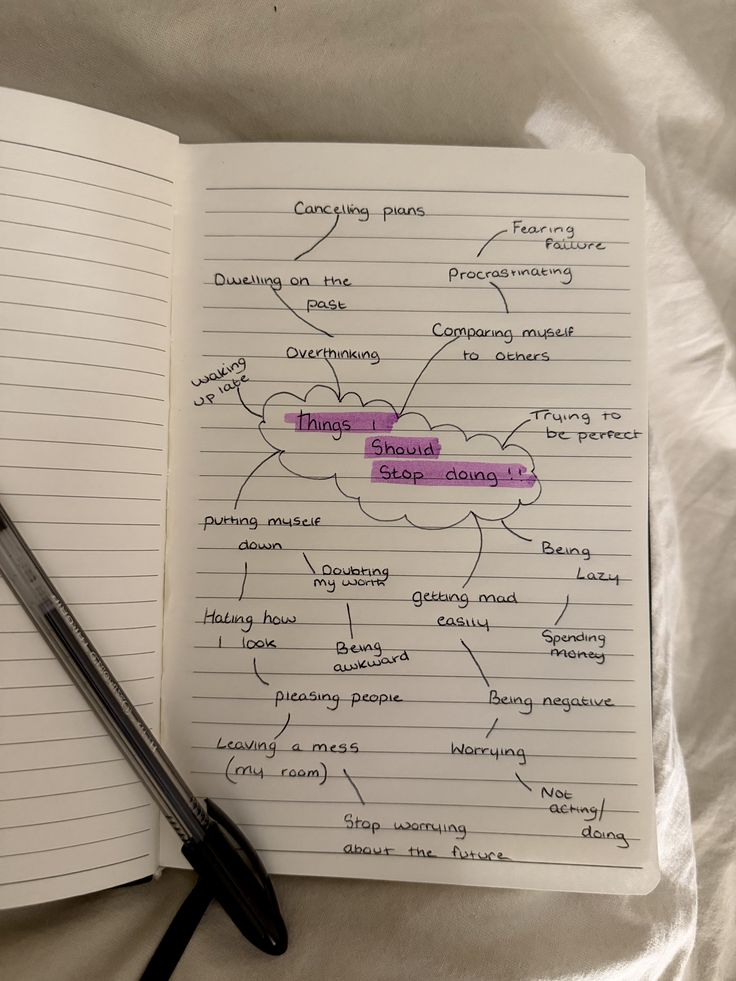 Cancelling plans
Fearing
failure
Dwelling on the
past
Procrastinating
Comparing myself
to others
Overthinking
waking
up late
Things i
Should
Stop doing !!
Trying to
be perfect
putting myself
down
Doubting
my worth
Being
Lazy
getting mad
easily
Hating how
I look
Being
awkward
Spending
money
pleasing people
Being negative
Leaving a mess
(my room)
Worrying
Not
acting/
doing
Stop worrying
about the future